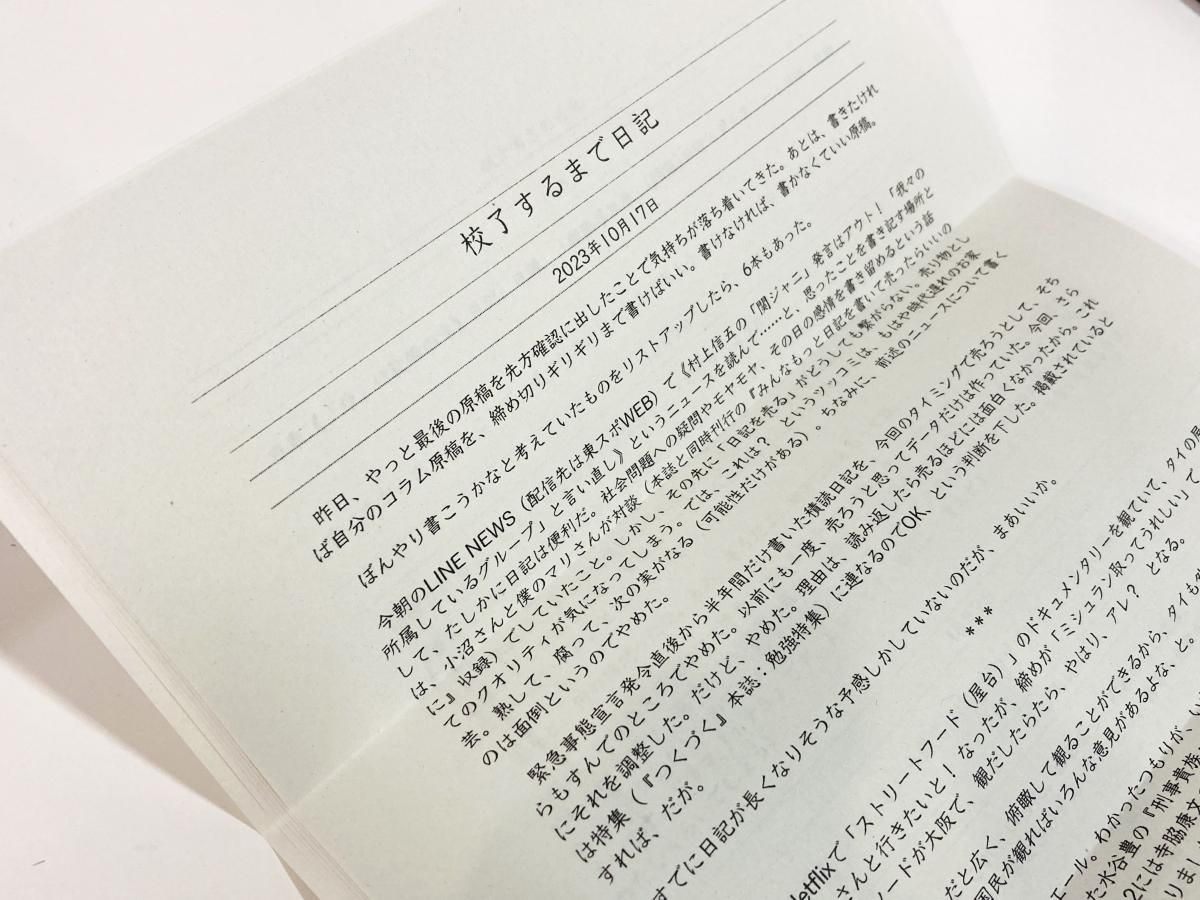 校了するまで日記
2023年10月17日
昨日、やっと最後の原稿を先方確認に出したことで気持ちが落ち着いてきた。あとは、書きたけれ
ば自分のコラム原稿を、締め切りギリギリまで書けばいい。書けなければ、書かなくていい原稿。
ぼんやり書こうかなと考えていたものをリストアップしたら、6本もあった。
今朝のLINE NEWS（配信先は東スポWEB）で《村上信五の「関ジャニ」発言はアウト！「我々の
所属しているグループ」と言い直し》というニュースを読んで……と、思ったことを書き記す場所と
して、たしかに日記は便利だ。社会問題への疑問やモヤモヤ、その日の感情を書き留めるという話
は、小沼さんと僕のマリさんが対談（本誌と同時刊行の『みんなもっと日記を書いて売ったらいいの
に』収録）でしていたこと。しかし、その先に「日記を売る」がどうしても繋がらない。売り物とし
てのクオリティが気になってしまう。では、これは？ というツッコミは、もはや時代遅れのお家
芸。熟して、腐って、次の実がなる（可能性だけがある）。ちなみに、前述のニュースについて書く
のは面倒というのでやめた。
緊急事態宣言発令直後から半年間だけ書いた積読日記を、今回のタイミングで売ろうとして、そち
らもすんでのところでやめた。以前にも一度、売ろうと思ってデータだけは作っていた。今回、さら
にそれを調整した。だけど、やめた。理由は、読み返したら売るほどには面白くなかったから。これ
は特集（『つくづく』本誌：勉強特集）に連なるのでOK、という判断を下した。掲載されていると
すれば、だが。
すでに日記が長くなりそうな予感しかしていないのだが、まあいいか。
***
Netflixで「ストリートフード（屋台）」のドキュメンタリーを観ていて、タイの屋
さんと行きたいと！なったが、締めが「ミシュラン取ってうれしい」で
ソードが大阪で、観だしたらたら、やはり、アレ？ となる。
だと広く、俯瞰して観ることができるから、タイも
国民が観ればいろんな意見があるよな、と。
エール。わかったつもりが、い
た水谷豊の『刑事貴族
2には寺脇康文
りまし